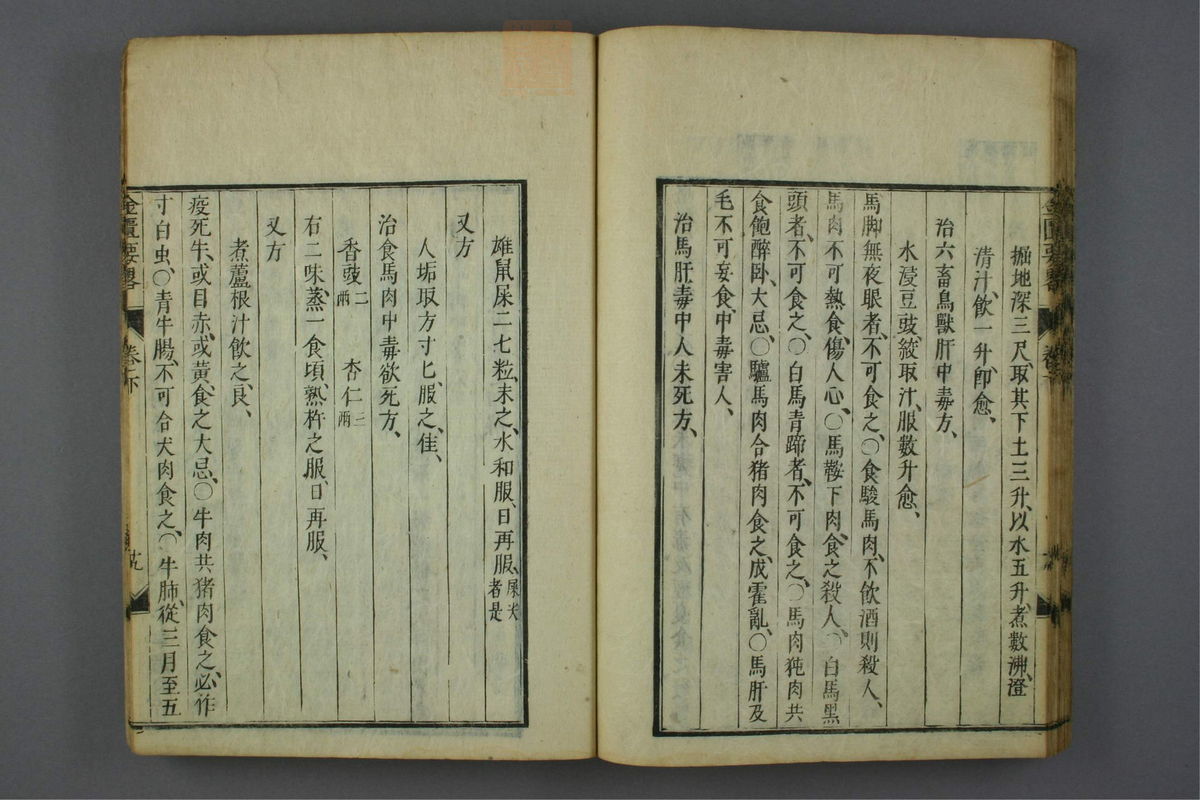 掘地深三尺、取其下土三升、以水五升、煮數沸、澄
清汁、飲一升、卽愈、
治六畜鳥獸肝中毒方、
水浸豆豉絞取汁、服數升愈、
馬脚無夜眼者、不可食之、○食駿馬肉、不飲酒則殺人、
馬肉不可熱食、傷人心、○馬鞍下肉、食之殺人、○白馬黑
頭者、不可食之、○白馬青蹄者、不可食之、○馬肉㹠肉共
食飽醉卧、大忌、○驢馬肉合猪肉食之、成霍亂、○馬肝及
毛不可妄食、中毒害人、
治馬肝毒中人未死方、
雄鼠屎二七粒、末之、水和服、日再服、屎尖者是
又方
人垢取方寸匕、服之、佳、
治食馬肉中毒欲死方、
香豉二兩 杏仁三兩
右二味、蒸一食頃、熟杵之服、日再服、
又方
煮蘆根汁飲之良、
疫死牛、或目赤、或黃、食之大忌、○牛肉共猪肉食之、必作
寸白虫、○青牛腸、不可合犬肉食之、○牛肺、從三月至五
金匱要畧 卷下 廿九